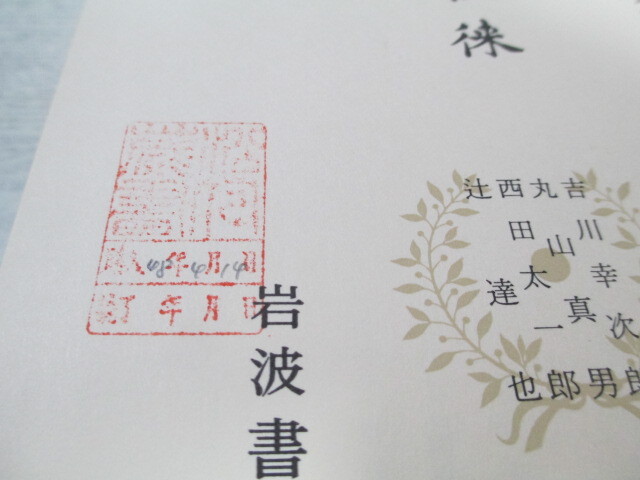 徠
吉川幸次郎
丸山真男
西田太一郎
辻達也
年月日
48 4 14
年月日
岩波書